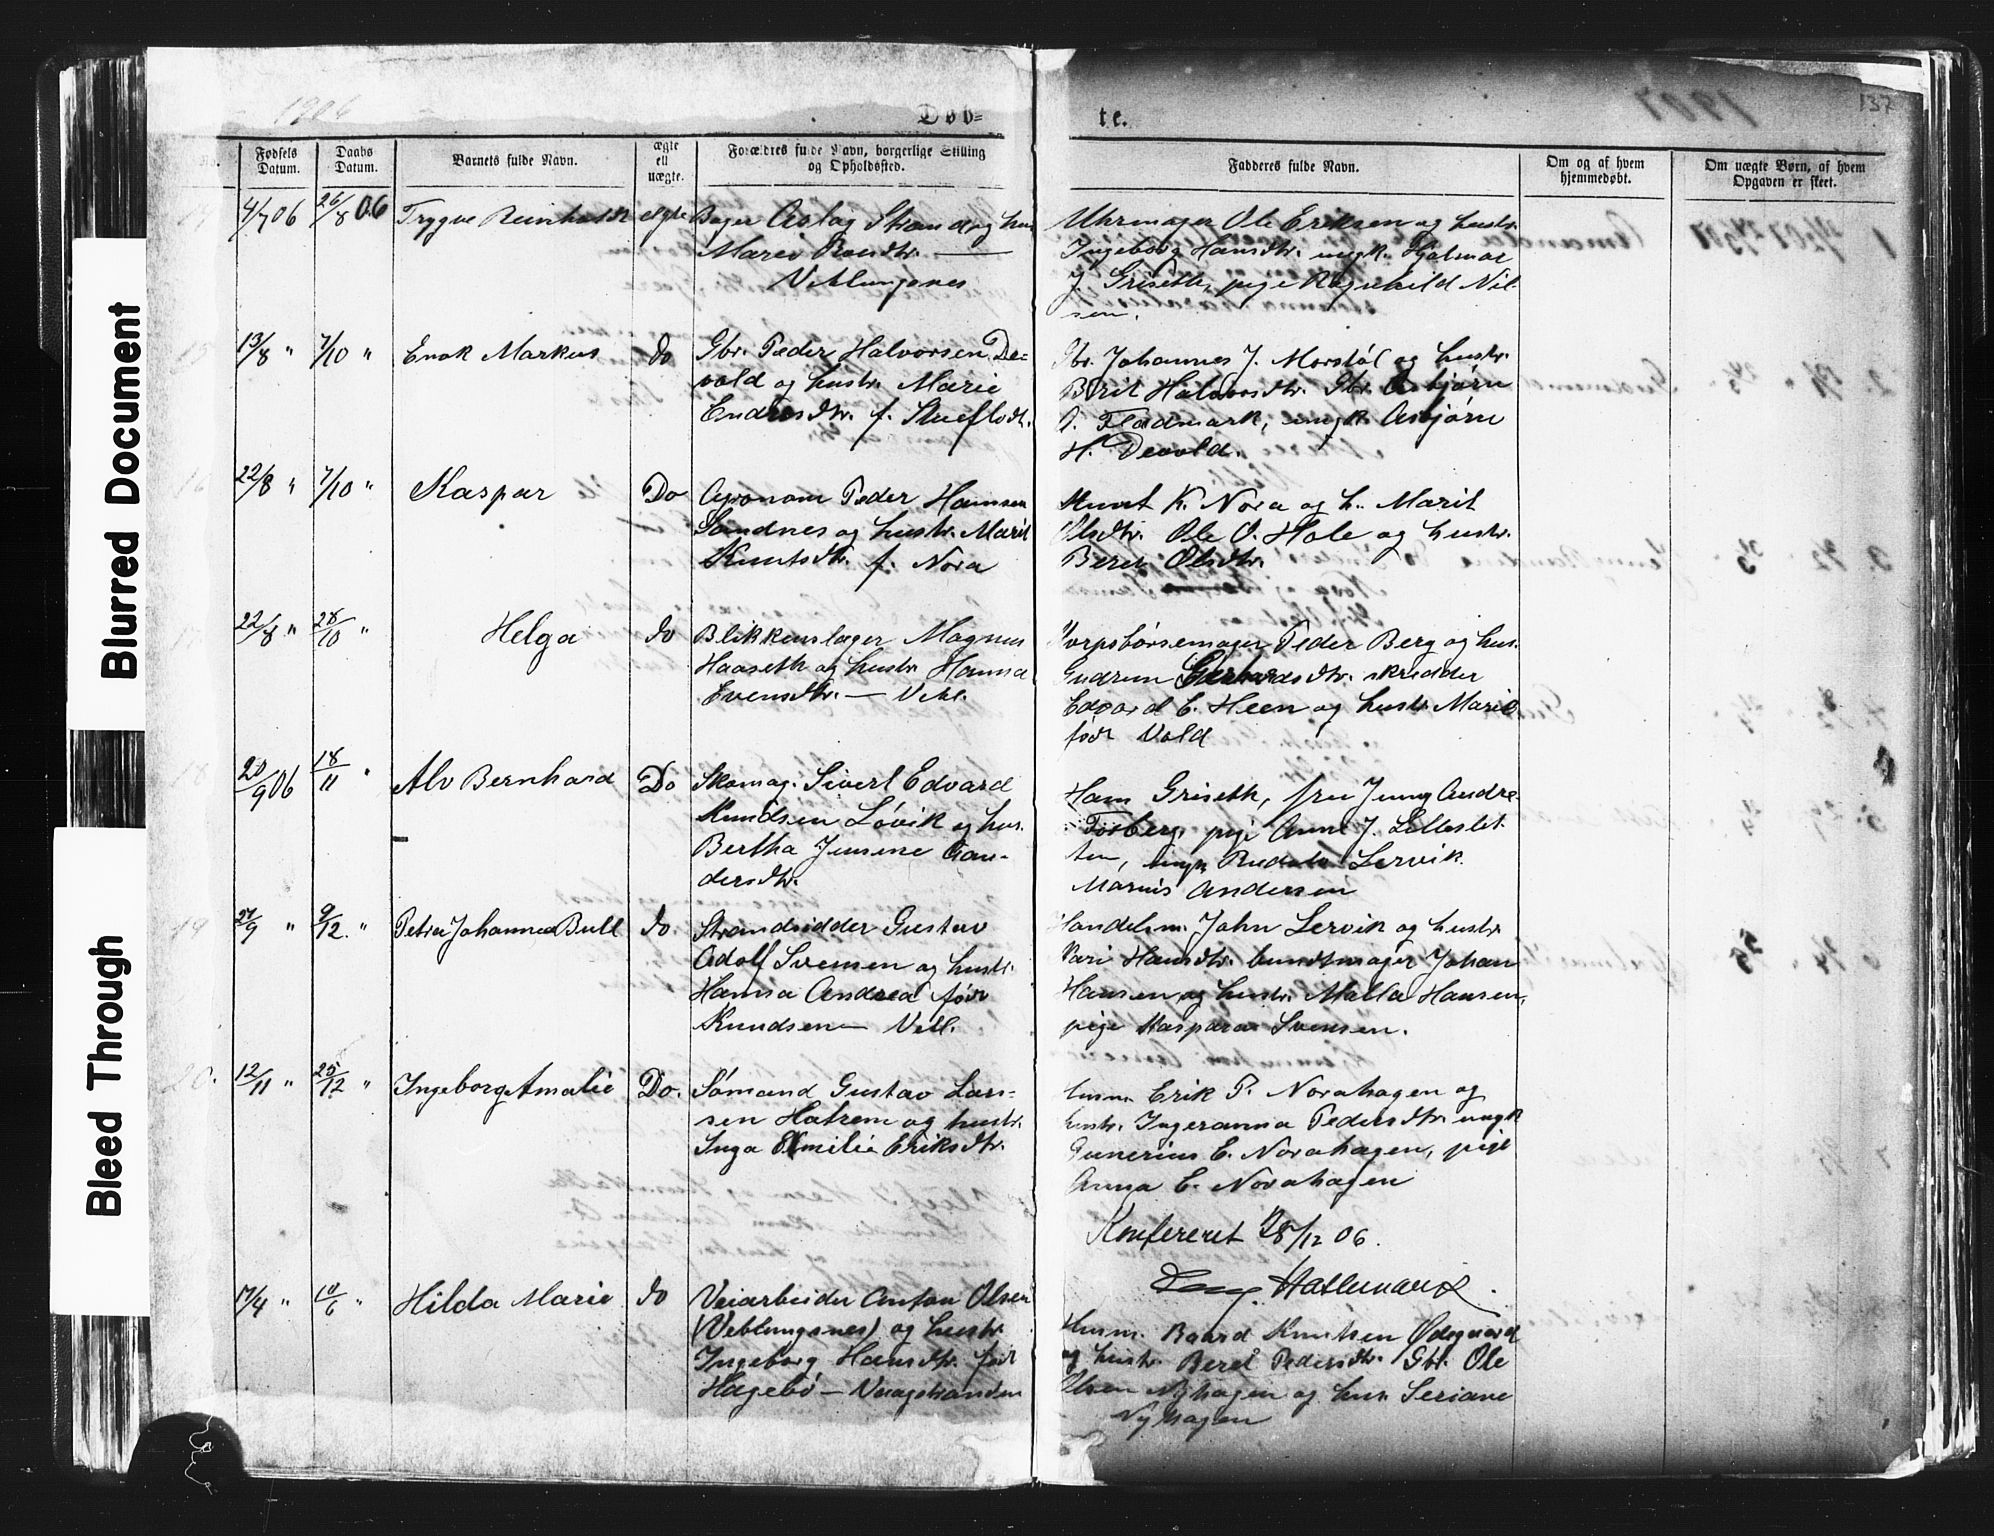 1906
Døb=
te.
137
1907
No.
Fødsels Datum.
Daabs Datum.
Barnets fulde Navn.
ægte ell uægte.
Forældres fulde Navn, borgerlige Stilling og Opholdssted.
Fadderes fulde Navn.
Om og af hvem hjemmedøbt.
Om uægte Børn, af hvem Opgaven er skeet.
Blurred Document
Bleed Through
4/7 06
26/8 06
Trygve Reinholdt
egte
Bager Aslag Strand og hus
Marei
Veblungsnes
Uhrmager Ole Eriksen og hustr.
Ingeborg Hansdtr. ungk. Hjalmar
J. Griseth, pige Ragnhild Nil-
sen.
15
13/8 "
7/10 "
Enok Markus
do
Gbr. Peder Halvorsen De-
vold og hustr. Marie
Endresdtr. f. Stueflodt.
Gbr. Johannes J. Morstøl og hustr.
Brit Halvorsdtr. Gbr. Asbjørn
O. Fladmark, ungk. Asbjørn
H. Devold.
16
22/8 "
7/10 "
Kaspar
Do
Agronom Peder Hansen
Sandnes og hustr. Marit
Knutsdtr. f. Nora
Knut K. Nora og h. Marit
Olsdtr. Ole O. Hole og hustr.
Beret Olsdtr.
22/8 "
28/10 "
Helga
do
Blikkenslager Magnus
Haaseth og hustr. Hanna
Evensdtr. — Vebl.
Korpsbørsemager Peder Berg og hus.
Gudrun Gerhardsdtr. skredder
Edvard E. Heen og hustr. Marie
født Vold
18
20/9 06
18/11 "
Alv Bernhard
Do
Skomag. Sivert Edvard
Knudsen Løvik og hus.
Bertha Jensine Gun-
dersdtr.
Hans Griseth, fru Jenny Andre-
Torberg, pige Anne J. Lilleslet-
ten, ungk Rudolv Lervik
Marius Andersen
19
27/9 "
9/12. "
Petra Johanna Bull
do.
Strandsidder Gustav
Adolf Svensen og hustr.
Hanna Andrea født
Knudsen — Vebl.
Handelsm. John Lervik og hustr.
Kari Hansdtr. bundtmager Johan
Hansen og hustr. Malla Hansen,
pige Kaspara Svensen.
20.
12/11 "
25/12 "
Ingeborg Amalie
Do.
Sømand Gustav Lar-
sen Hatrem og hustr.
Inga Emilie Eriksdtr.
Husm. Erik P. Norahagen og
hustr. Ingeranna Pedersdtr. ungk
Gunerius E. Norahagen, pige
Anna E. Norahagen
Konfereret 28/12 06.
17/4 "
10/6 "
Hilda Marie
do
Veiarbeider Anton Olsen
(Veblungsnes) og hustr.
Ingeborg Hansdtr. født
Hagebø — Vaagstranden
Husm. Baard Knutsen Ødegaard
og hustr. Beret Pedersdtr. Gbr. Ole
Olsen Nyhagen og hus. Seriane
Nyhagen